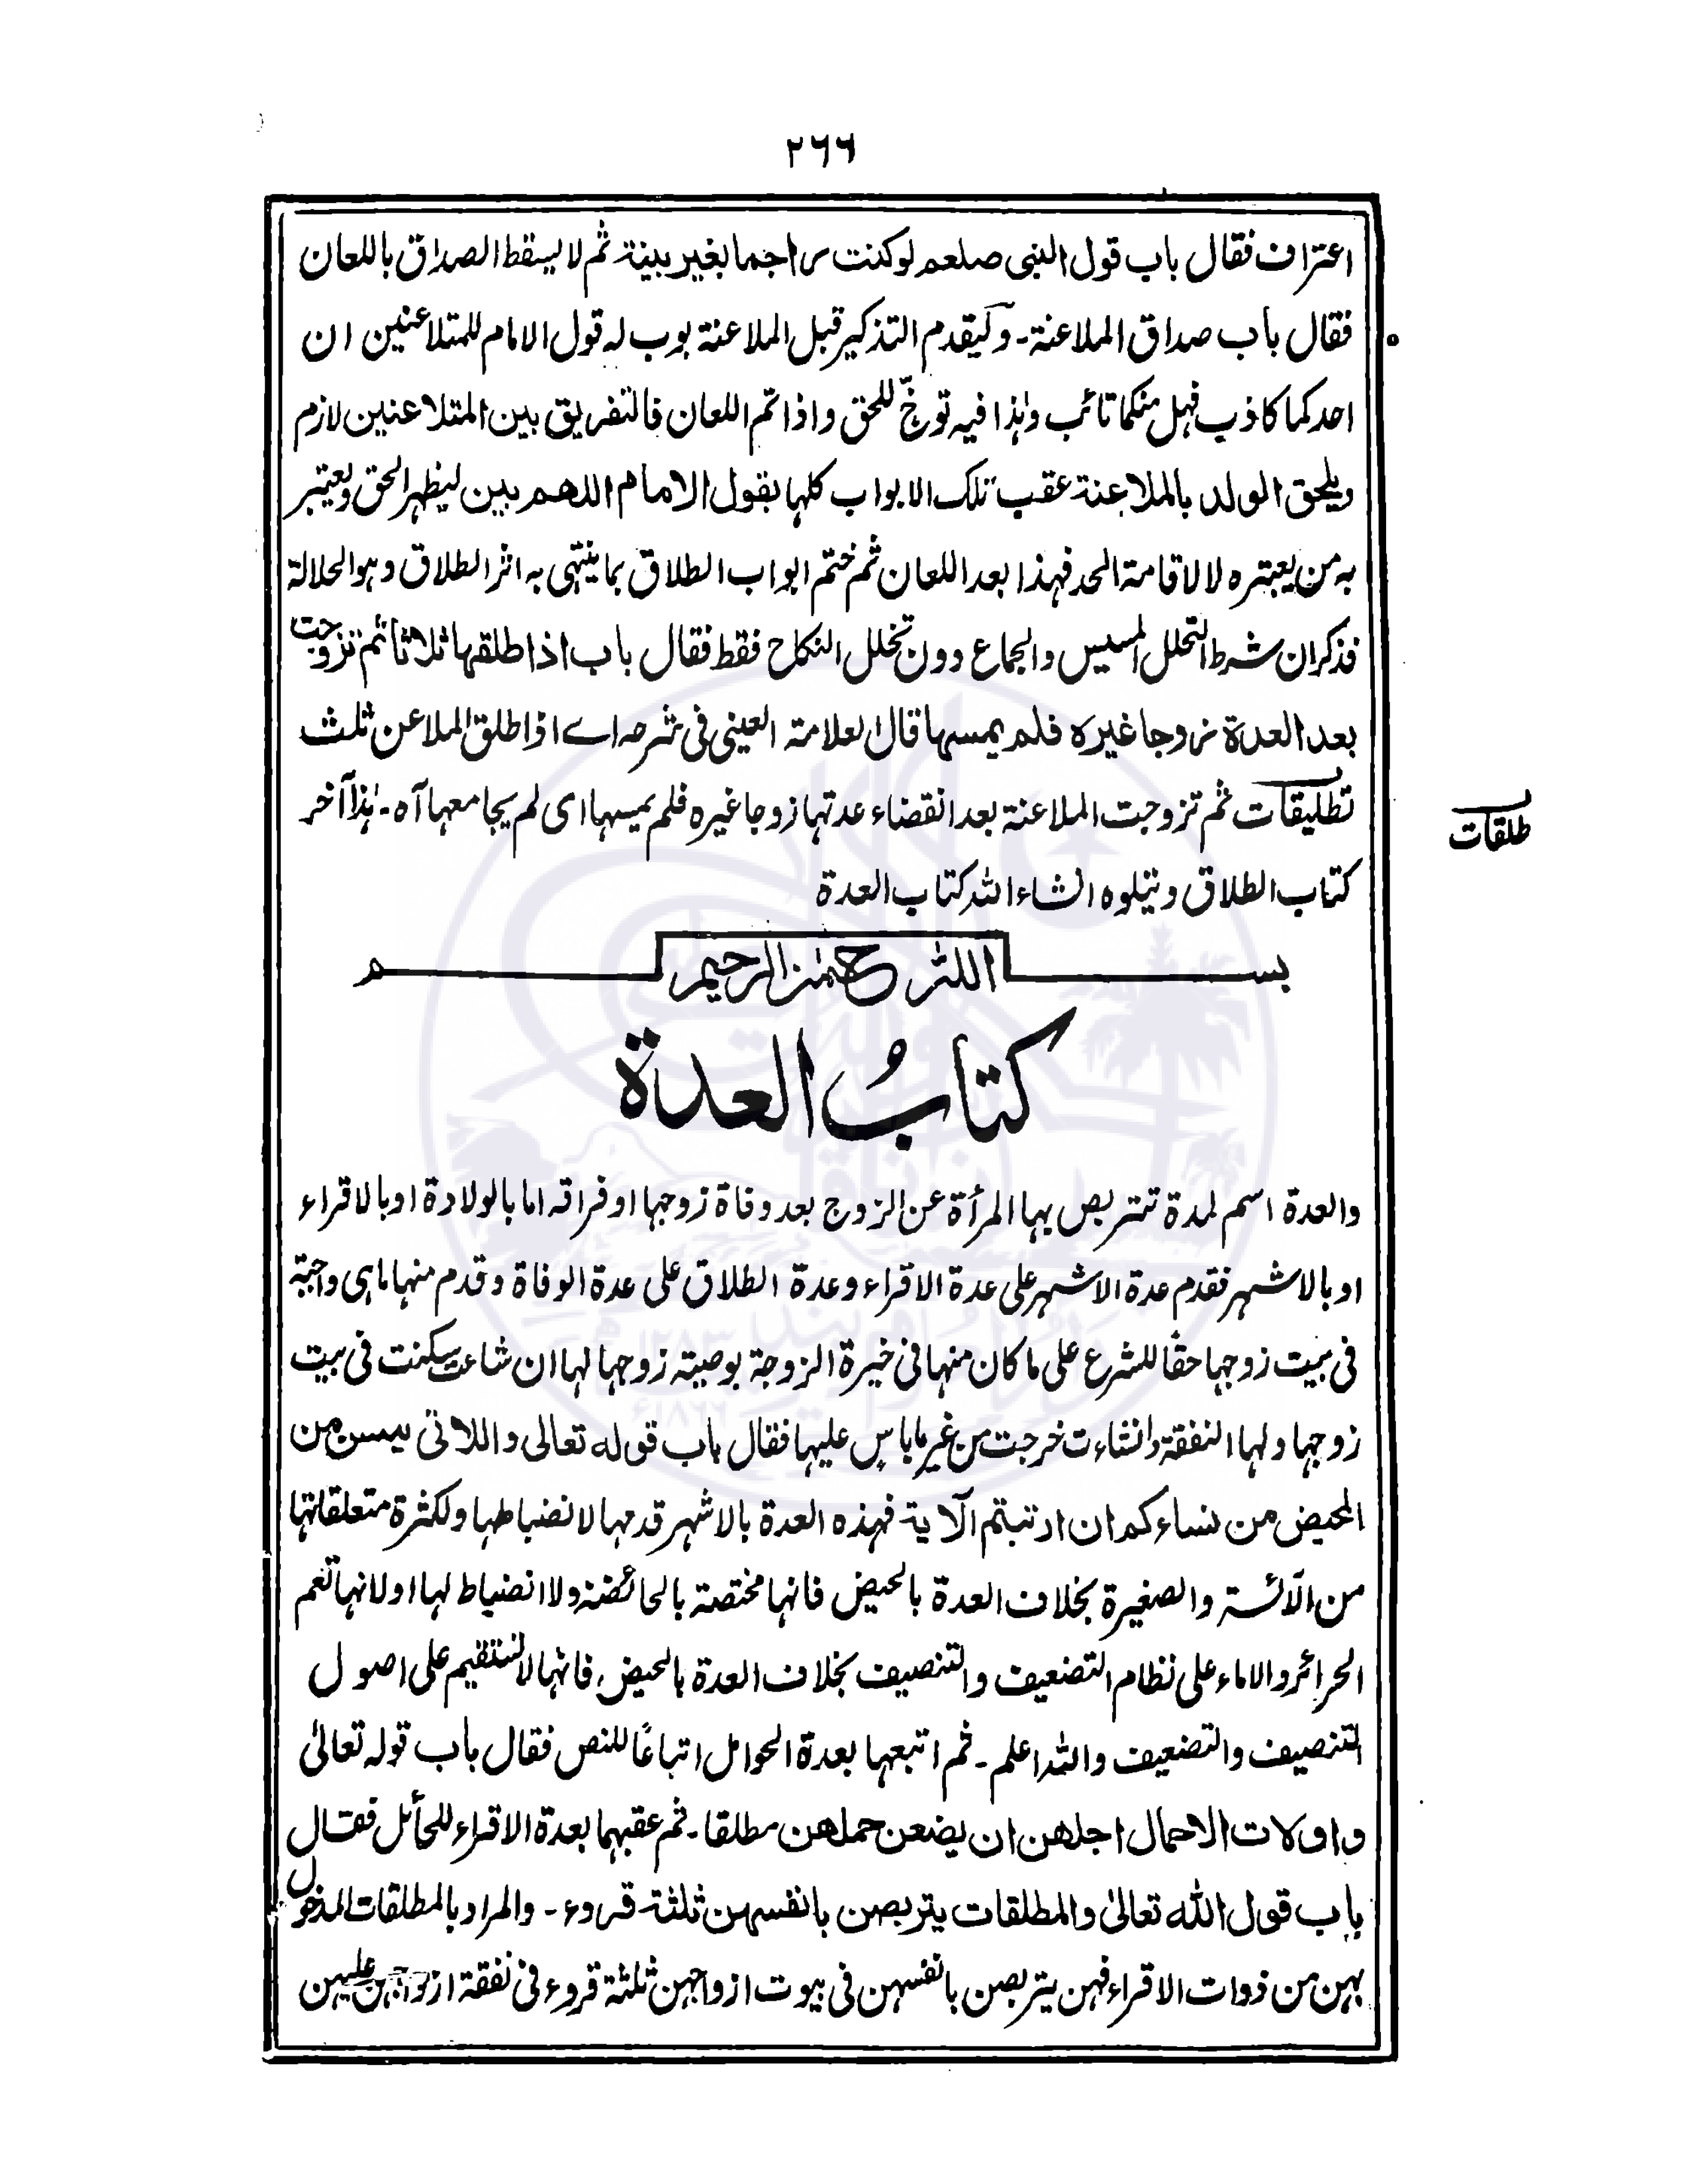 ٢٦٦
اعتراف فقال باب قول النبى صلعم لو كنت راجما بغير بينة ثم لا يسقط الصداق باللعان
فقال باب صداق الملاعنة - وليقدم التذكير قبل الملاعنة بوب له قول الامام للمتلاعنين ان
احدكما كاذب فهل منكما تائب وهذا فيه توخّ للحق واذا تم اللعان فالتفريق بين المتلاعنين لازم
ويلحق الولد بالملاعنة عقب تلك الابواب كلها بقول الامام اللهم بين ليظهر الحق ويعتبر
به من يعتبره لا لاقامة الحد فهذا بعد اللعان ثم ختم ابواب الطلاق بما ينتهى به اثر الطلاق وهو الحلالة
فذكر ان شرط التحلل المسيس والجماع دون تخلل النكاح فقط فقال باب اذا طلقها ثلاثا ثم تزوجت
بعد العدة زوجا غيره فلم يمسها قال العلامة العينى فى شرحه اے اذا طلق الملاعن ثلث
تطليقات ثم تزوجت الملاعنة بعد انقضاء عدتها زوجا غيره فلم يمسها اى لم يجامعها آه - هذا آخر
طلقات
كتاب الطلاق ويتلوه انشاء الله كتاب العدة
بسم الله الرحمن الرحيم
كتابُ العدة
والعدة اسم لمدة تتربص بها المرأة عن الزوج بعد وفاة زوجها او فراقه اما بالولادة او بالاقراء
او بالاشهر فقدم عدة الاشهر على عدة الاقراء وعدة الطلاق على عدة الوفاة وقدم منها ماهى واجبة
فى بيت زوجها حقا للشرع على ما كان منها فى خيرة الزوجة بوصية زوجها لها ان شاءت سكنت فى بيت
زوجها ولها النفقة وانشاءت خرجت من غير ما باس عليها فقال باب قوله تعالى واللاتى يئسن من
المحيض من نساءكم ان ارتبتم الآية فهذه العدة بالاشهر قدمها لانضباطها ولكثرة متعلقاتها
من الآئسة والصغيرة بخلاف العدة بالحيض فانها مختصة بالحائضة ولا انضباط لها او لانها تعم
الحرائر والاماء على نظام التضعيف والتنصيف بخلاف العدة بالحيض فانها لا تستقيم على اصول
التنصيف والتضعيف والله اعلم - ثم اتبعها بعدة الحوامل اتباعًا للنص فقال باب قوله تعالىٰ
واولات الاحمال اجلهن ان يضعن حملهن مطلقا - ثم عقبهما بعدة الاقراء للحائل فقال
باب قول الله تعالىٰ والمطلقات يتربصن بانفسهن ثلثة قروء - والمراد بالمطلقات المدخول
بهن من ذوات الاقراء فهن يتربصن بانفسهن فى بيوت ازواجهن ثلثة قروء فى نفقة ازواجهن عليهن